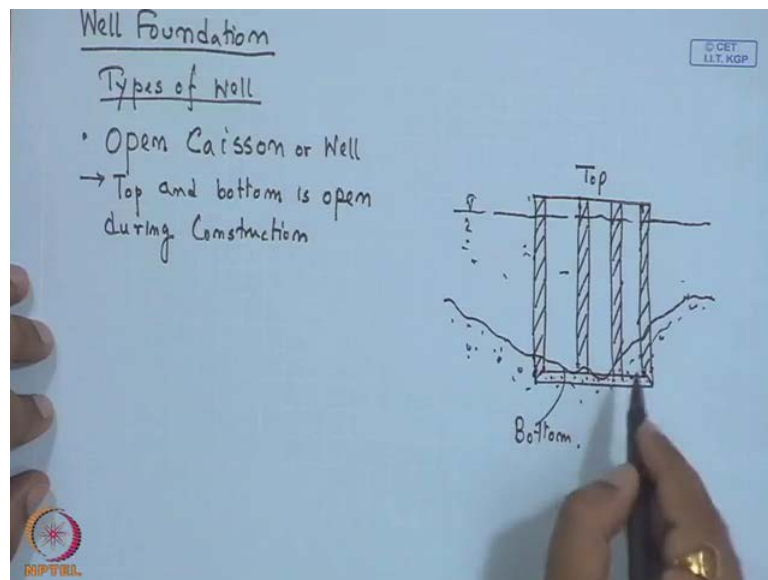 Well Foundation
Types of Well
• Open Caisson or Well
→ Top and bottom is open
during Construction
Top
Bottom.
© CET
I.I.T. KGP
NPTEL